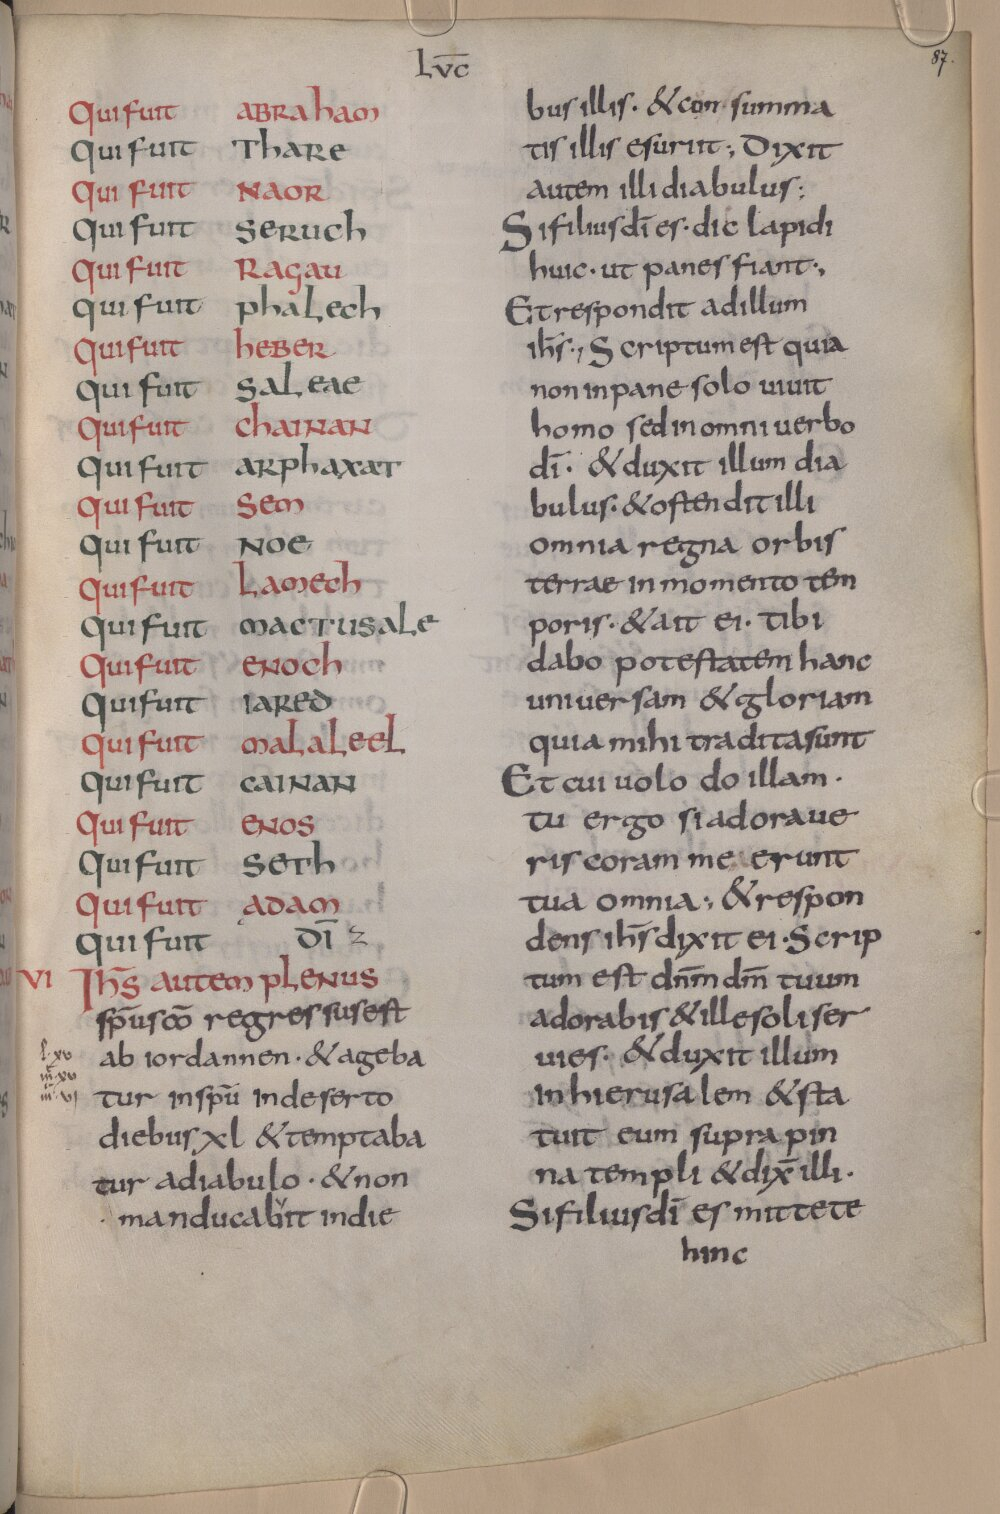 Lūc
87.
Qui fuit abraham
Qui fuit Thare
Qui fuit NAOR
Qui fuit Seruch
Qui fuit Ragau
Qui fuit phaLech
Qui fuit heBer
Qui fuit SaLeae
Qui fuit chaiNAN
Qui fuit ARphaxAT
Qui fuit Sem
Qui fuit NOe
Qui fuit Lamech
Qui fuit macTusaLe
Qui fuit eNoch
Qui fuit iaRed
Qui fuit maLaLeeL
Qui fuit caiNAN
Qui fuit eNos
Qui fuit SeTh
Qui fuit Adam
Qui fuit DĪ
VI Ih̄s autem pLeNus
sp̄u sc̄o regressus est
ab iordannen · & ageba
l · xv
m̄ · xv
m̄ · vi
tur in sp̄u in deserto
diebus xl & temptaba
tur a diabulo · & non
manducabit in die
v
bus illis · & con summa
tis illis esuriit ·, Dixit
autem illi diabulus ;
Si filius dī es · dic lapidi
huic · ut panes fiant ·,
Et respondit ad illum
ih̄s ·, Scriptum est quia
non in pane solo uiuit
homo sed in omni uerbo
dī · & duxit illum dia
bulus · & ostendit illi
omnia regna orbis
terrae in momento tem
poris · & ait ei · Tibi
dabo potestatem hanc
uniuersam & gloriam
quia mihi tradita sunt
Et cui uolo do illam ·
tu ergo si adoraue
ris coram me erunt
tua omnia ·, & respon
dens ih̄s dixit ei · Scrip
tum est dn̄m dm̄ tuum
adorabis & ille soli ser
uies · & duxit illum
in hierusalem & sta
tuit eum supra pin
na templi & dix̄ illi ·
Si filius dī es mitte te
hinc